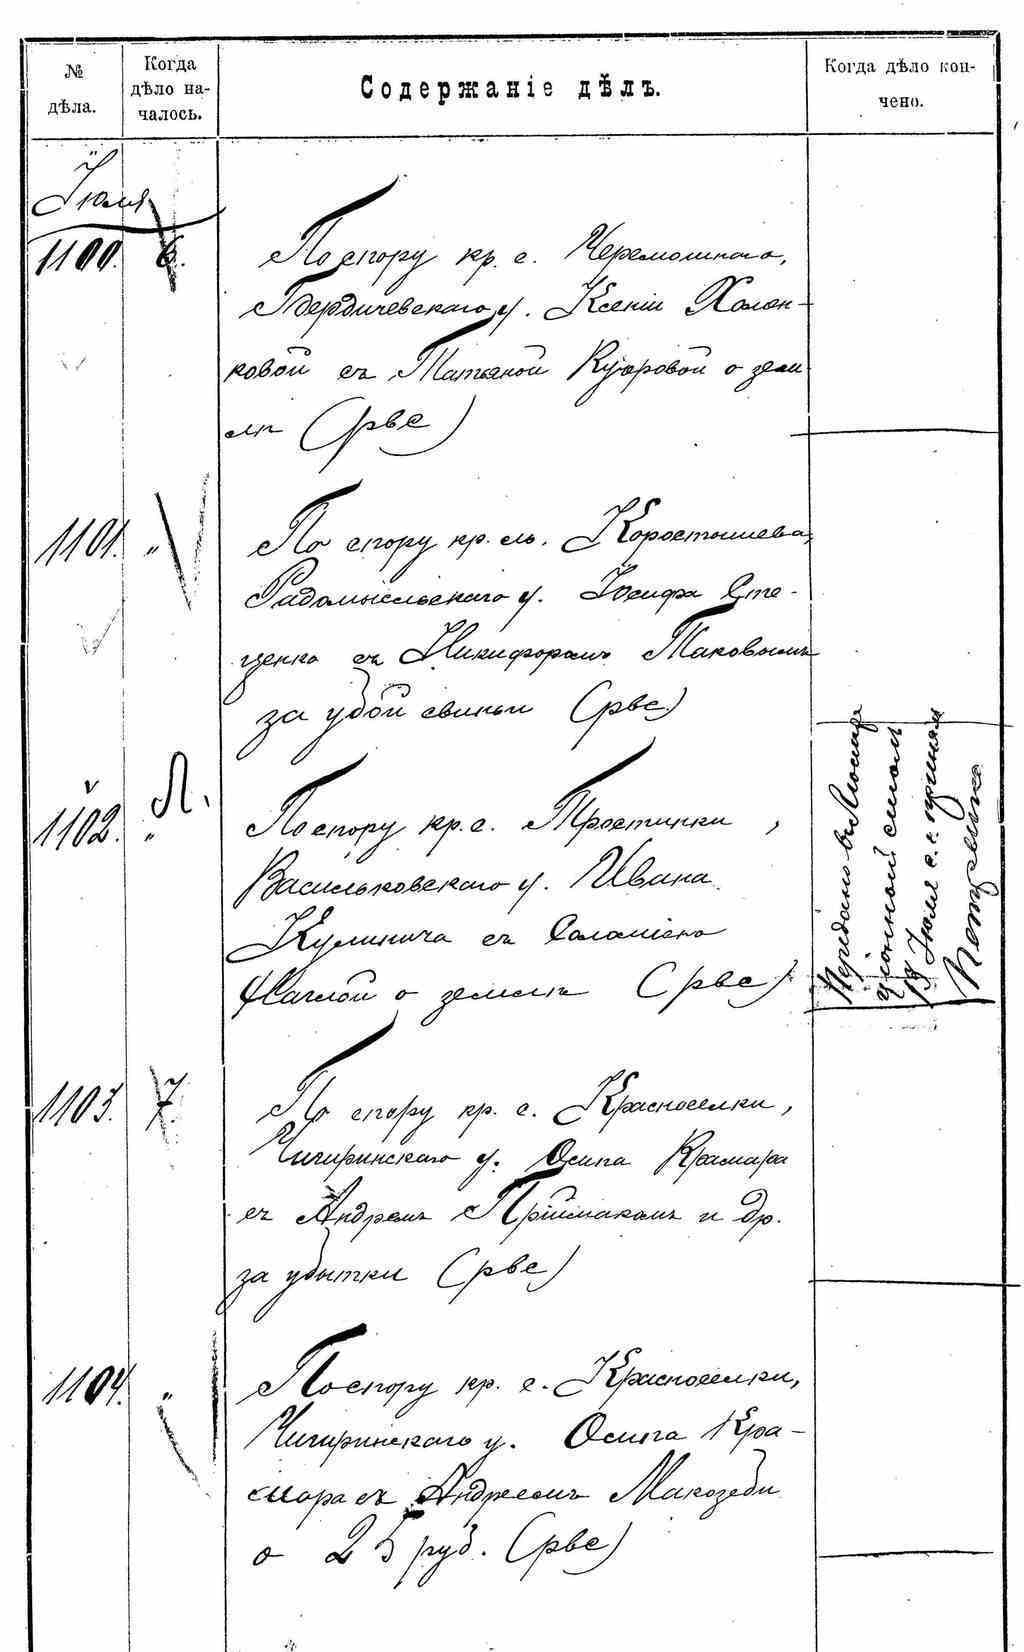 № дѣла.
Когда дѣло началось.
Содержаніе дѣлъ.
Когда дѣло кончено.
Іюля
1100. 6. По спору кр. с. Черемошного,
Бердичевскаго у. Ксеніи Холон-
ковой съ Татьяной Куровой о зем
лѣ (рвс)
1101. " По спору кр. м. Коростышева,
Радомысльскаго у. Іосифа Сте-
ценко съ Никифоромъ Таковымъ
за убой свиньи (рвс)
1102. " Л. По спору кр. с. Тростинки,
Васильковскаго у. Ивана
Кулинича съ Саломіею
о землѣ (рвс)
Передано въ
ціонный столъ
13 Іюля с. г. принялъ
1103. 7. По спору кр. с. Красноселки,
Чигиринскаго у. Осипа Крамара
съ Андреемъ Пріймакомъ и др.
за убытки (рвс)
1104. " По спору кр. с. Красноселки,
Чигиринскаго у. Осипа Кра-
мара съ Андреемъ Макозеби
о 25 руб. (рвс)